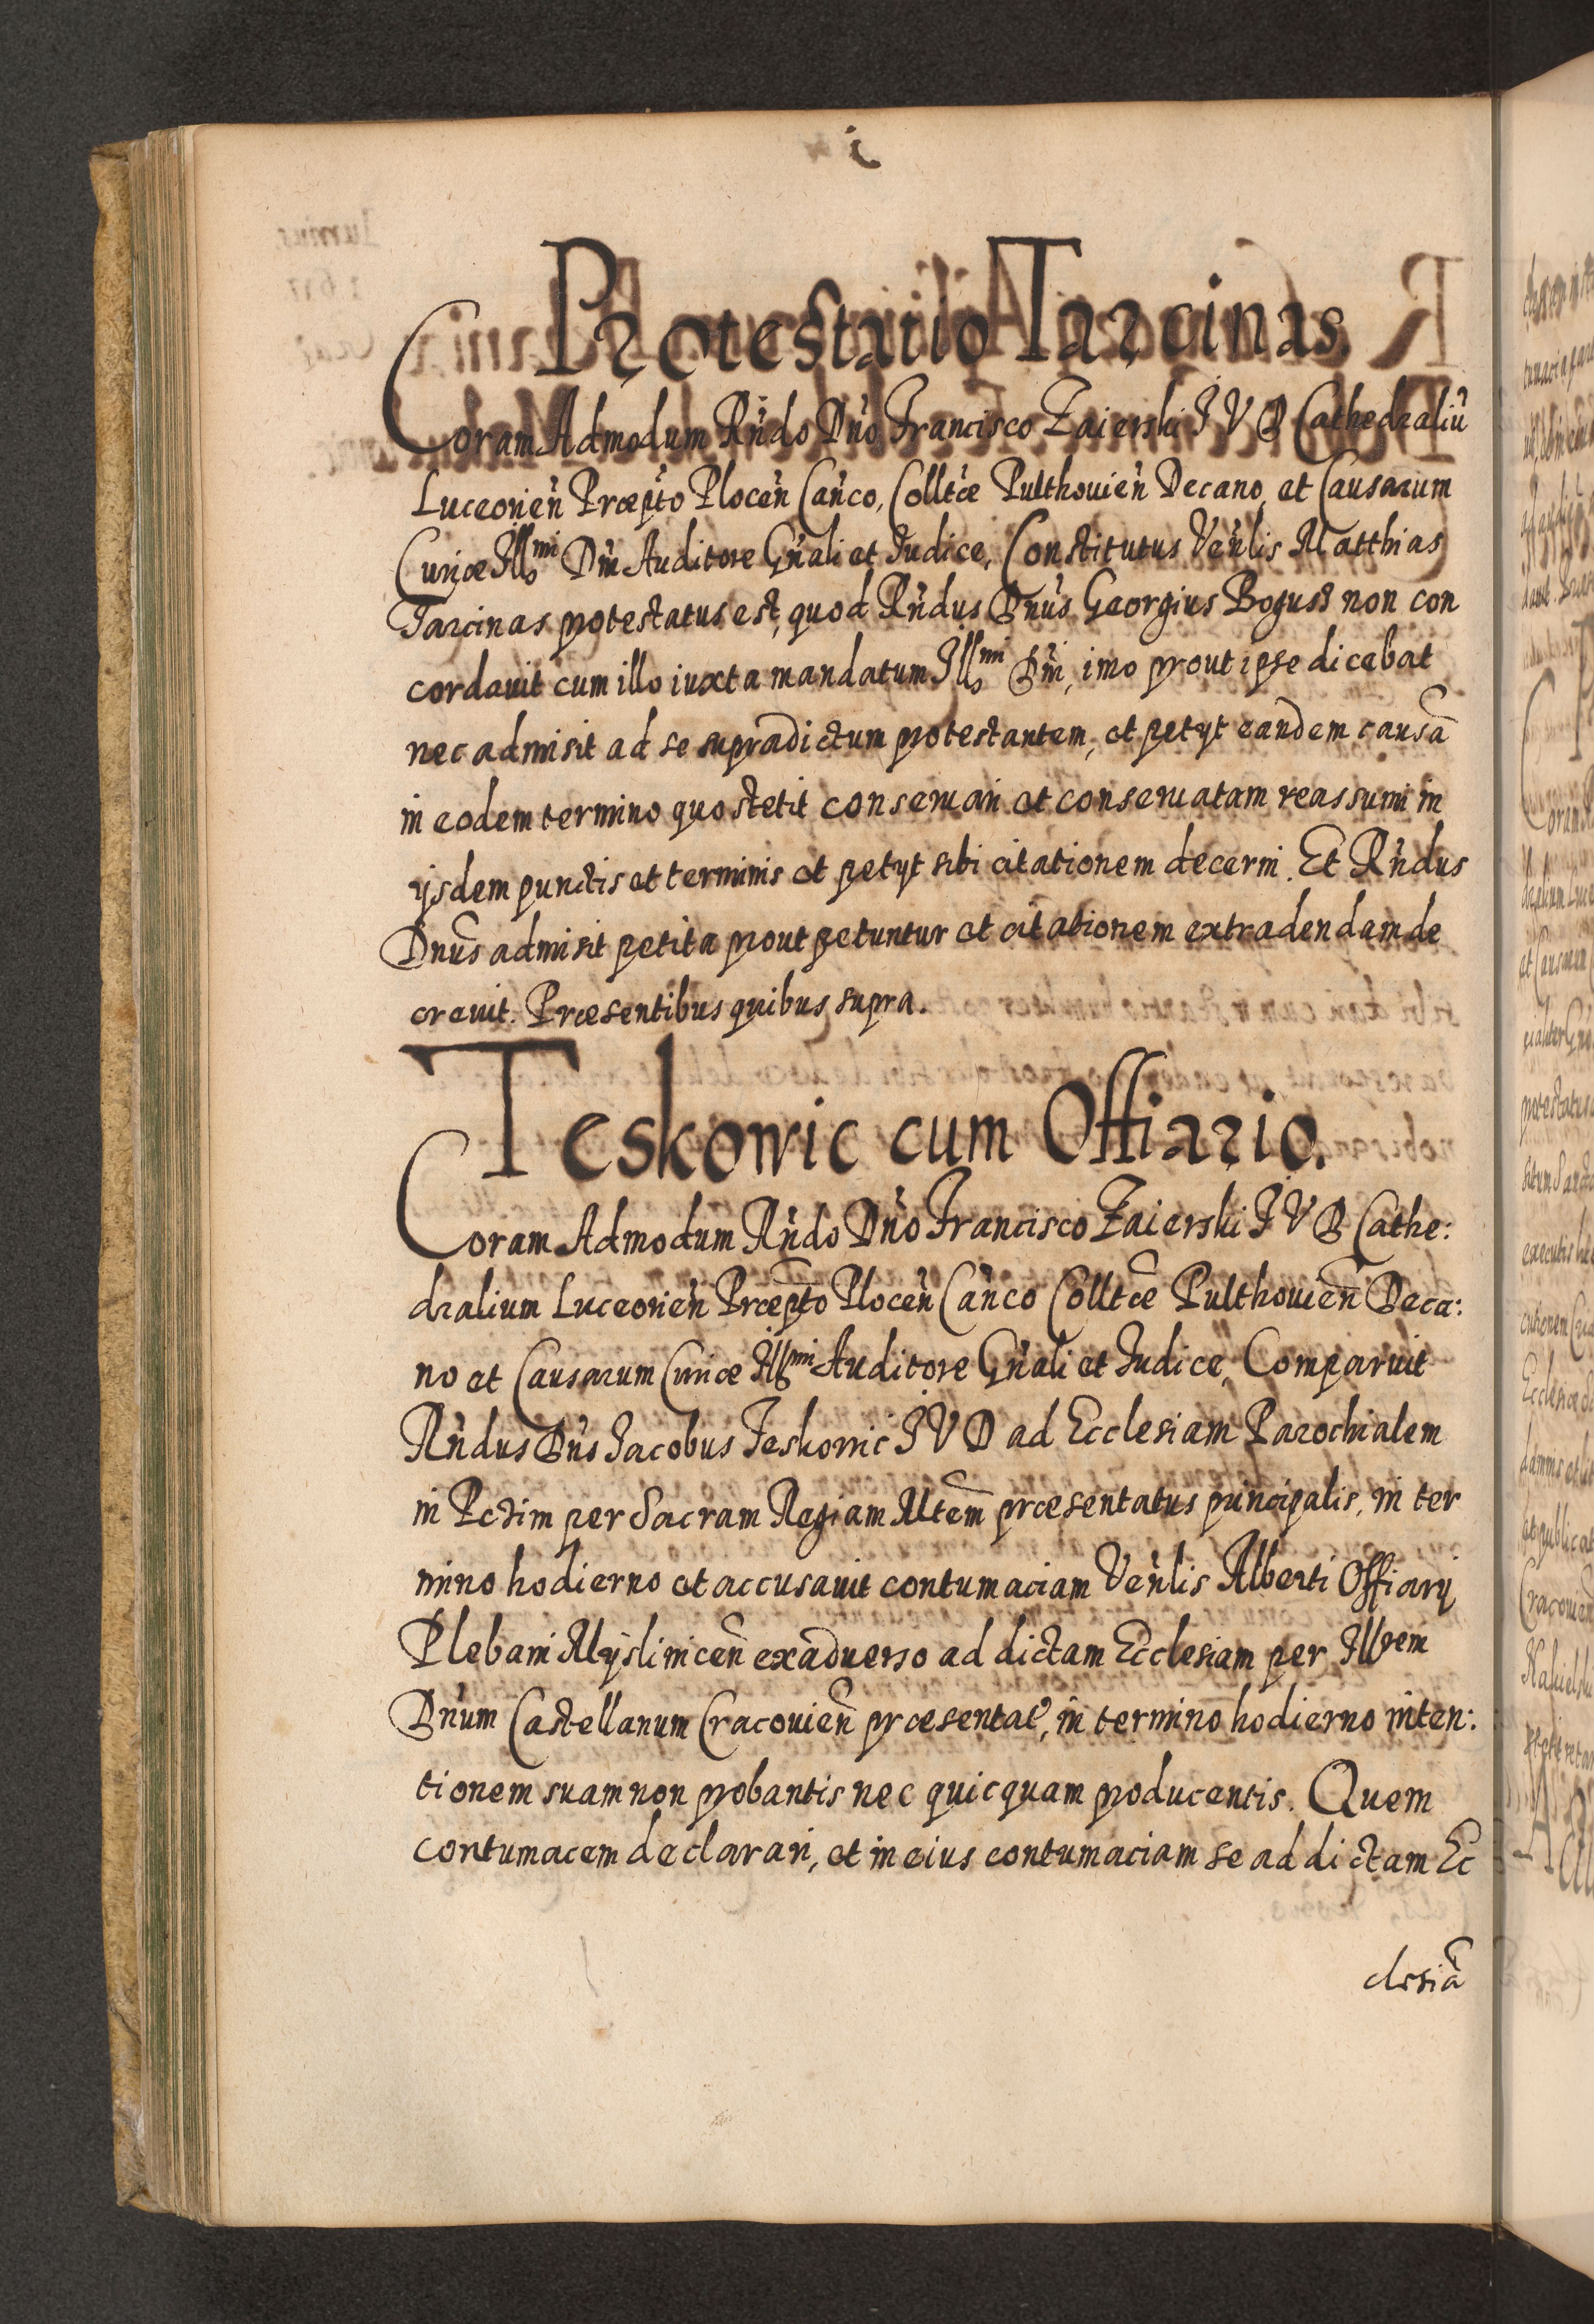 Protestatio Tarcinas.
Coram Admodum Rńdo Dńo Francisco Zaierski I V D Cathedraliū
Luceorień Præpto Ploceń Cańco, Colltæ Pulthouień Decano, et Causarum
Curiæ Illmi Dńi Auditore Gńali et Iudice, Constitutus Veńlis Matthias
Tarcinas protestatus est, quod Rńdus Dńus Georgius Boguss non con
cordauit cum illo iuxta mandatum Illmi Dńi, imo prout ipse dicebat
nec admisit ad se supradictum protestantem, et petyt eandem causā
in eodem termino quo stetit conseruari et conseruatam reassumi in
ijsdem punctis et terminis et petyt sibi citationem decerni. Et Rńdus
Dnus admisit petita prout petuntur et citationem extradendam de
creuit. Præsentibus quibus supra.
Teskowic cum Offiario.
Coram Admodum Rńdo Dńo Francisco Zaierski I V D Cathe:
dralium Luceorień Præpto Plocen Cańco Colltæ Pulthouień Deca:
no et Causarum Curiæ Illmi Auditore Gńali et Iudice, Comparuit
Rńdus Dńs Iacobus Teskowic I V D ad Ecclesiam Parochialem
in Pctim per Sacram Regiam Mtem præsentatus principalis, in ter
mino hodierno et accusauit contumaciam Veńlis Alberti Offiarij
Plebani Myslimicen exaduerso ad dictam Ecclesiam per Illrem
Dńum Castellanum Cracouień præsentat, in termino hodierno inten:
tionem suam non probantis nec quicquam producentis. Quem
contumacem declarari, et in eius contumaciam se ad dictam Ec
clesiā